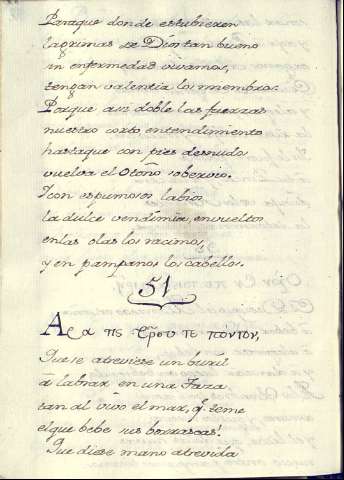 Paraque donde estubieren
lagrimas de Dios tan bueno
in enfermedad vivamos,
tengan valentia los miembros.
Porque asi doble las fuerzas
nuestro corto entendimiento
hastaque con pies desnudos
vuelva el Otoño sobervio.
Icon espumosos labios
la dulce vendimia, envueltos
enlas olas los racimos,
y en pampanos los cabellos.
51
Αρα τις τορευσε ποντον,
Que se atreviese un buril
á labrar en una Taza
tan al vivo el mar, q.e teme
elque bebe sus borrascas!
Que diese mano atrevida